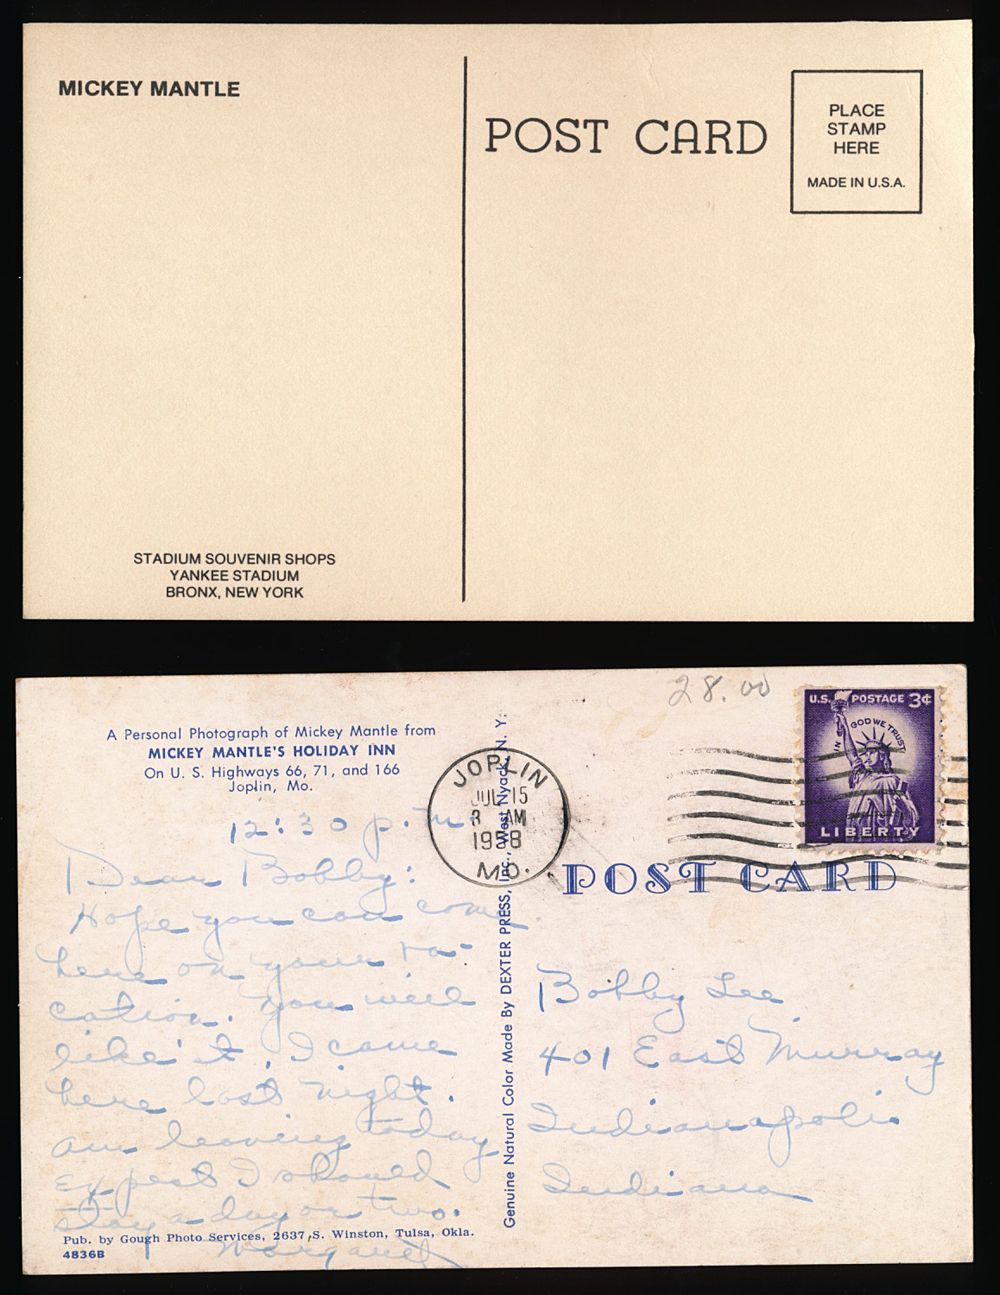 MICKEY MANTLE
POST CARD
PLACE
STAMP
HERE
MADE IN U.S.A.
STADIUM SOUVENIR SHOPS
YANKEE STADIUM
BRONX, NEW YORK
28.00
A Personal Photograph of Mickey Mantle from
MICKEY MANTLE'S HOLIDAY INN
On U. S. Highways 66, 71, and 166
Joplin, Mo.
12:30 p.m.
Dear Bobby:
Hope you can come
here on your va-
cation. You will
like it. I came
here last night.
am leaving today
expect I should
stay a day or two.
Margaret
Pub. by Gough Photo Services, 2637 S. Winston, Tulsa, Okla.
4836B
Genuine Natural Color Made By DEXTER PRESS, Inc., West Nyack, N. Y.
JOPLIN
JUL 15
AM
1958
MO.
U.S. POSTAGE 3¢
IN GOD WE TRUST
LIBERTY
POST CARD
Bobby Lee
401 East Murray
Indianapolis
Indiana